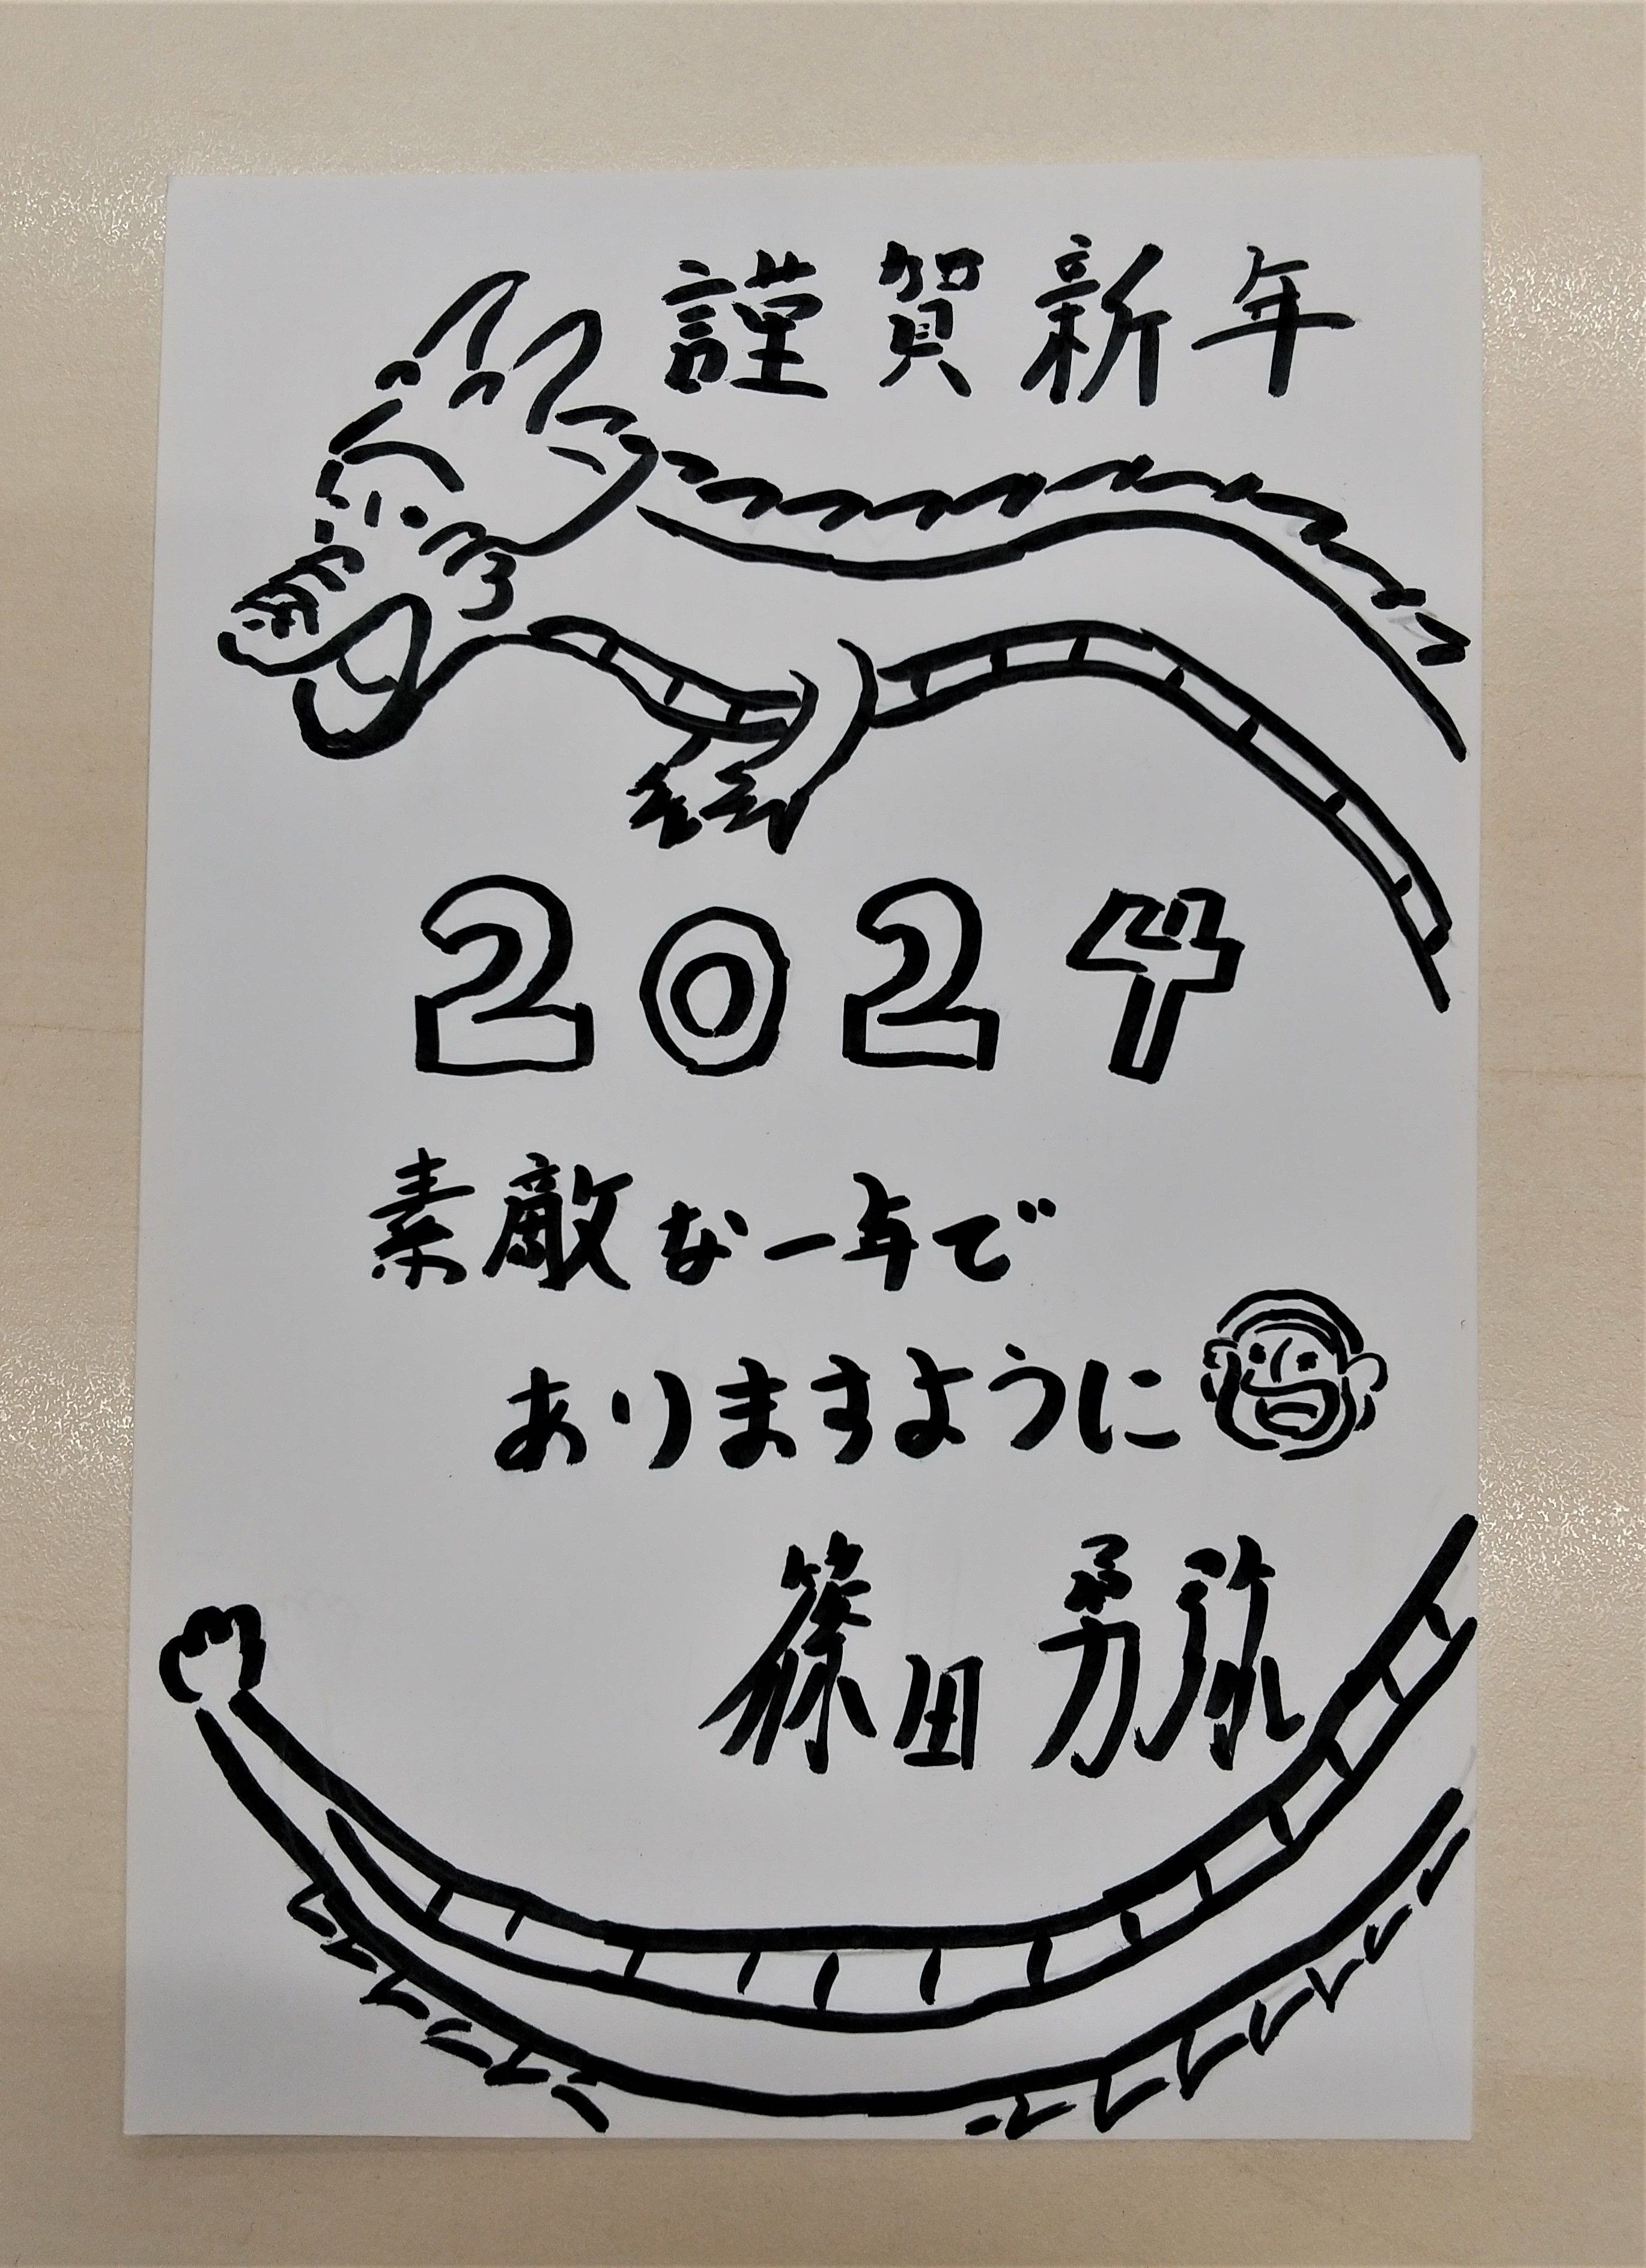 謹賀新年
2024
素敵な一年で
ありますように
篠田 勇弥